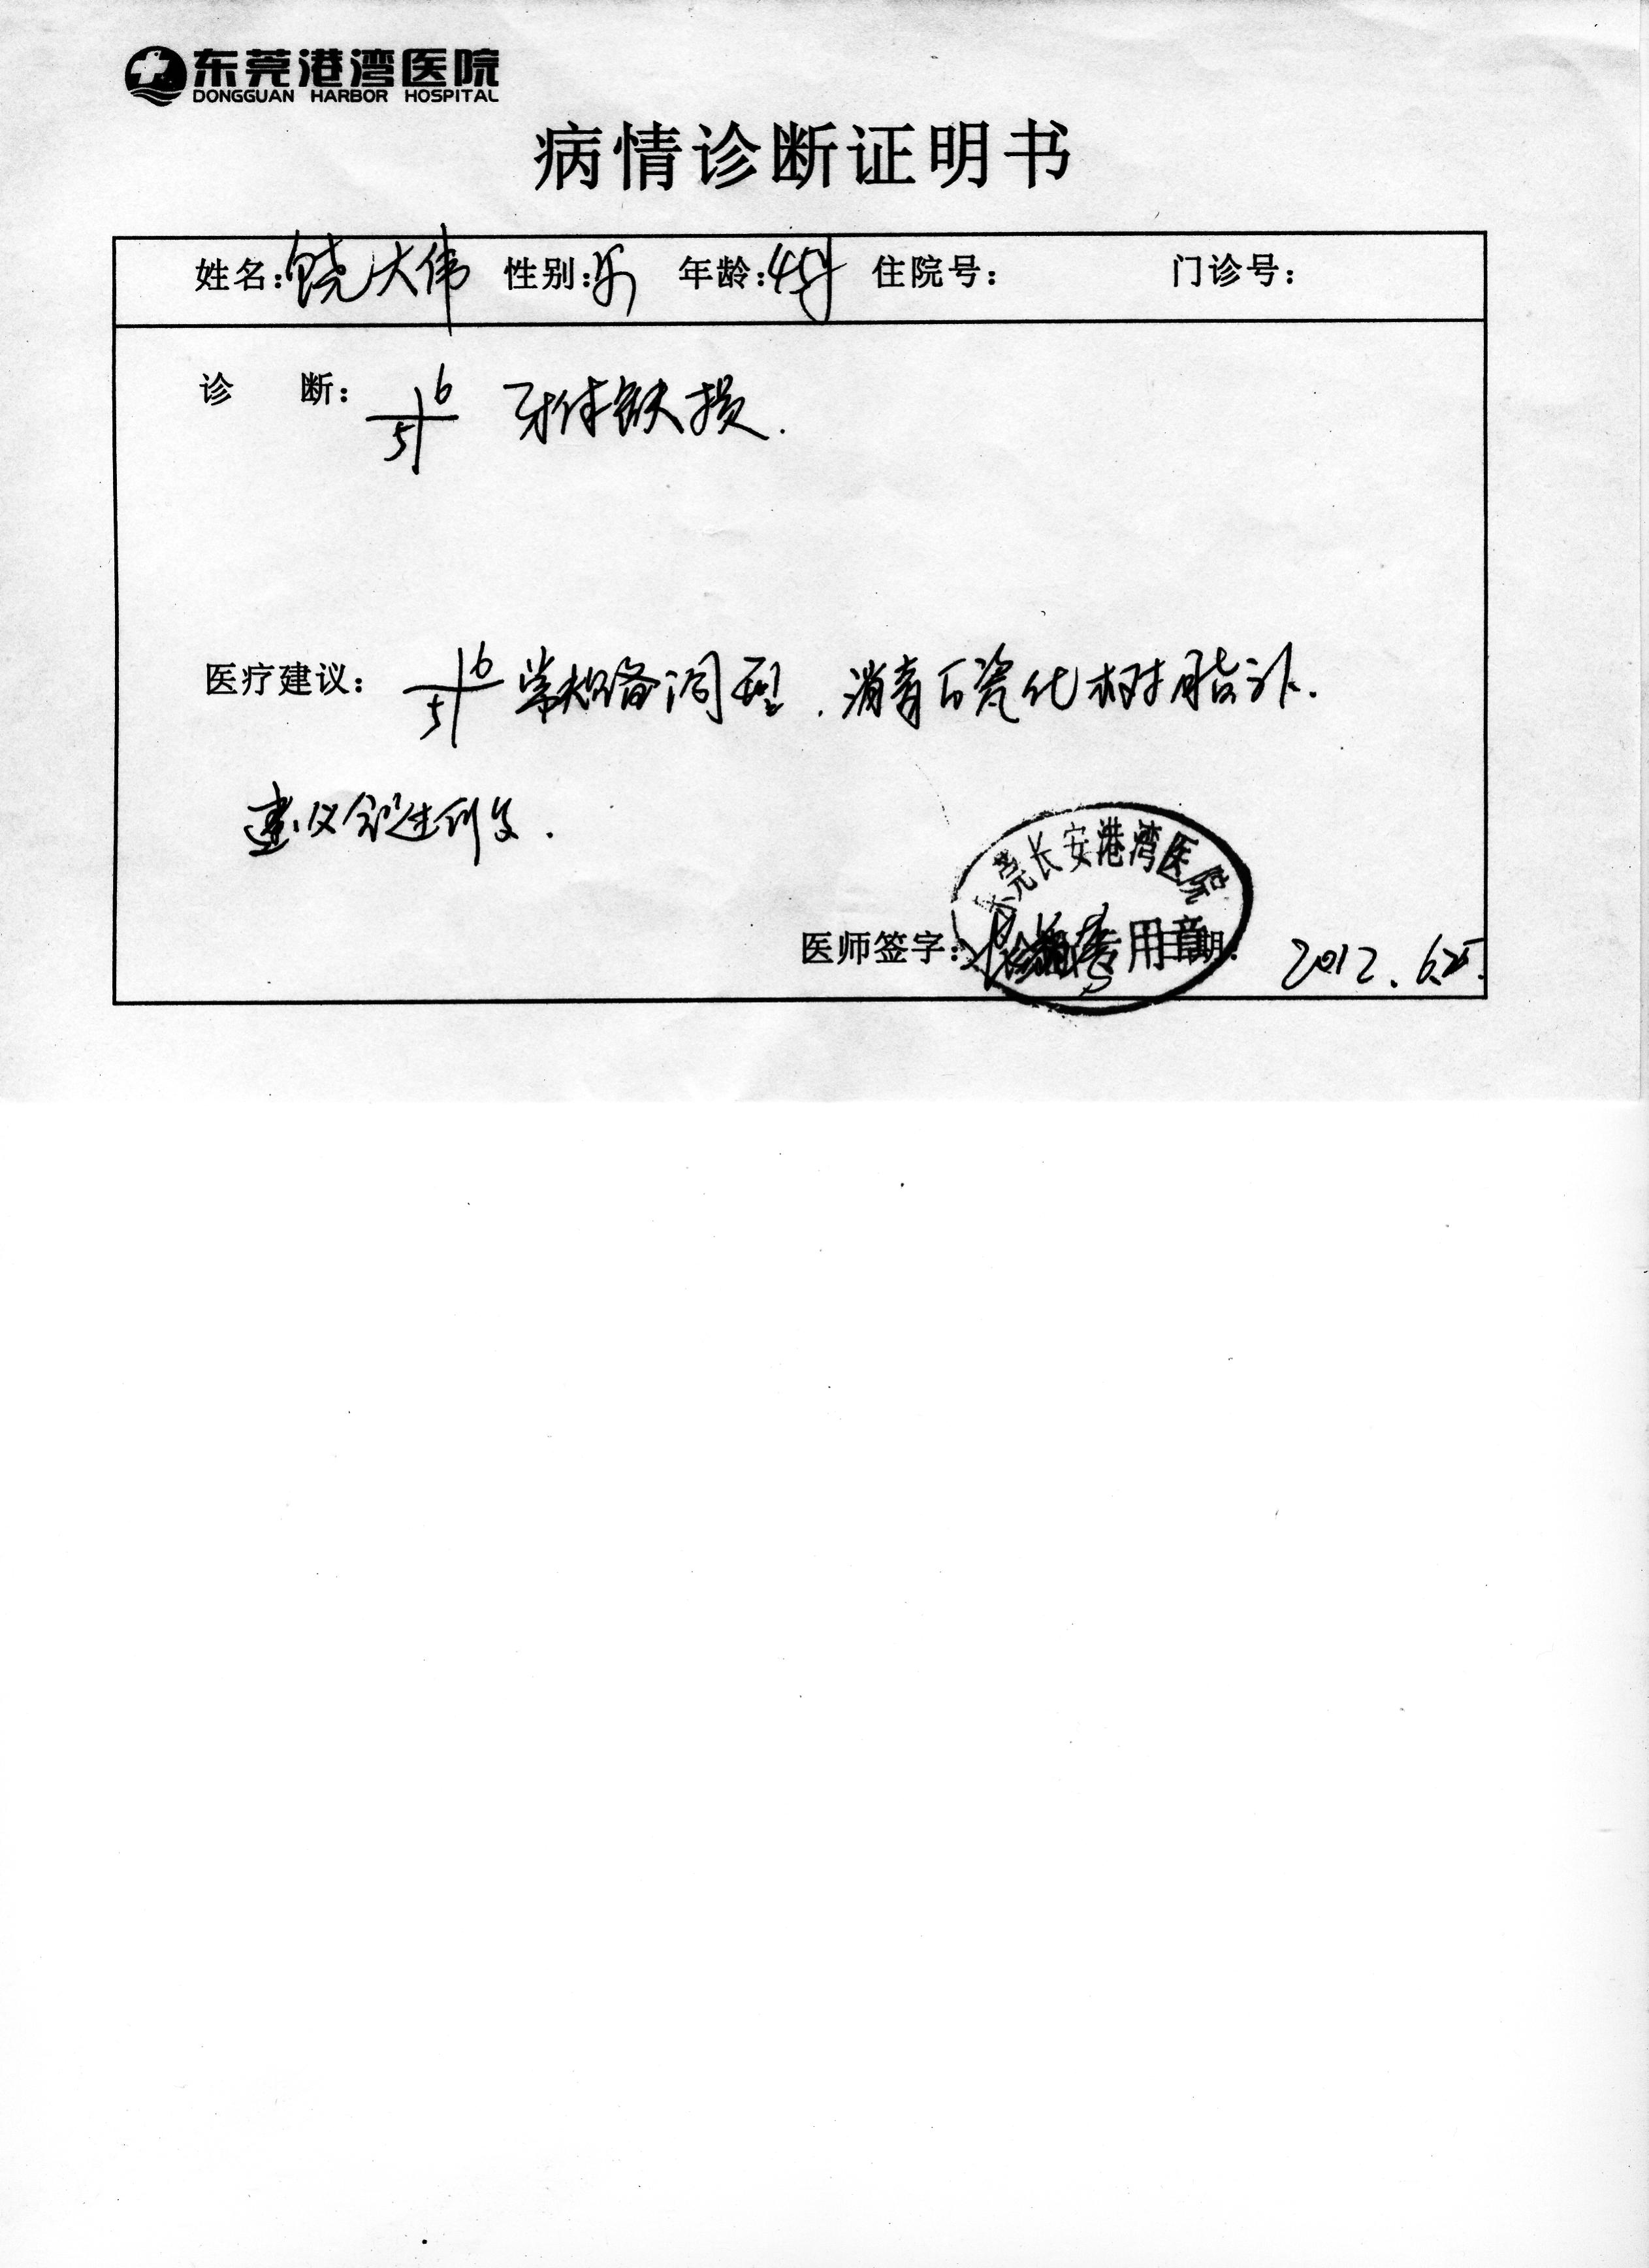 东莞港湾医院
DONGGUAN HARBOR HOSPITAL
病情诊断证明书
姓名:饶大伟 性别:男 年龄:45岁 住院号: 门诊号:
诊 断: 6
5 牙体缺损.
医疗建议: 6
5 常规备洞型. 消毒后瓷化树脂补.
建议
东莞长安港湾医院
专用章
医师签字: 日期: 2012.6.25.